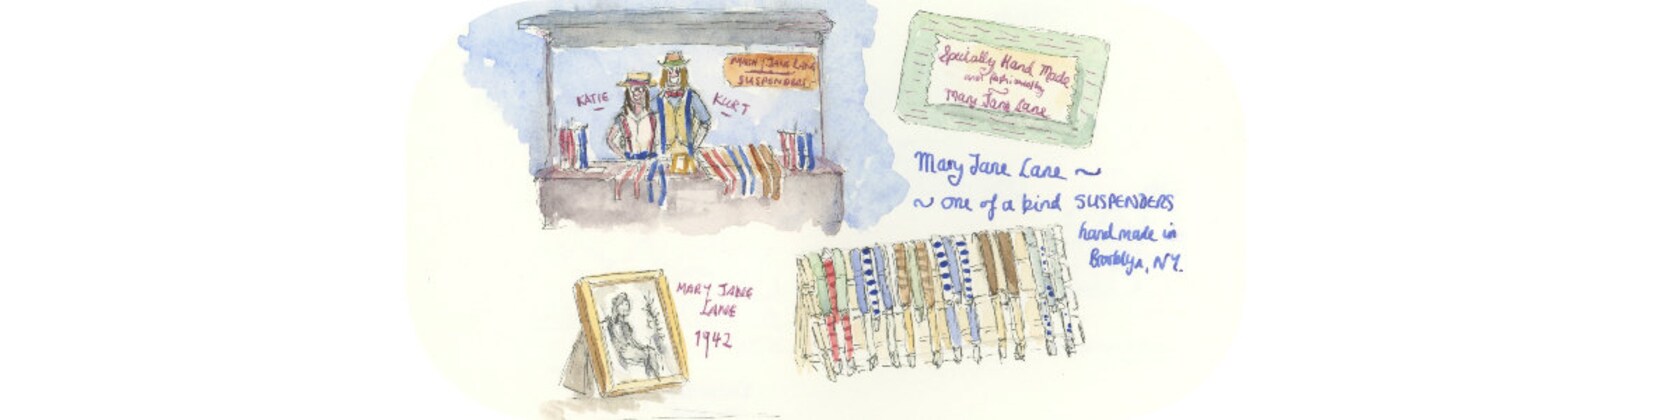 MARY JANE LANE
SUSPENDERS
KATIE
KURT
Specially Hand Made
and fashioned by
Mary Jane Lane
Mary Jane Lane ~
~ one of a kind SUSPENDERS
handmade in
Brooklyn, NY.
MARY JANE
LANE
1942